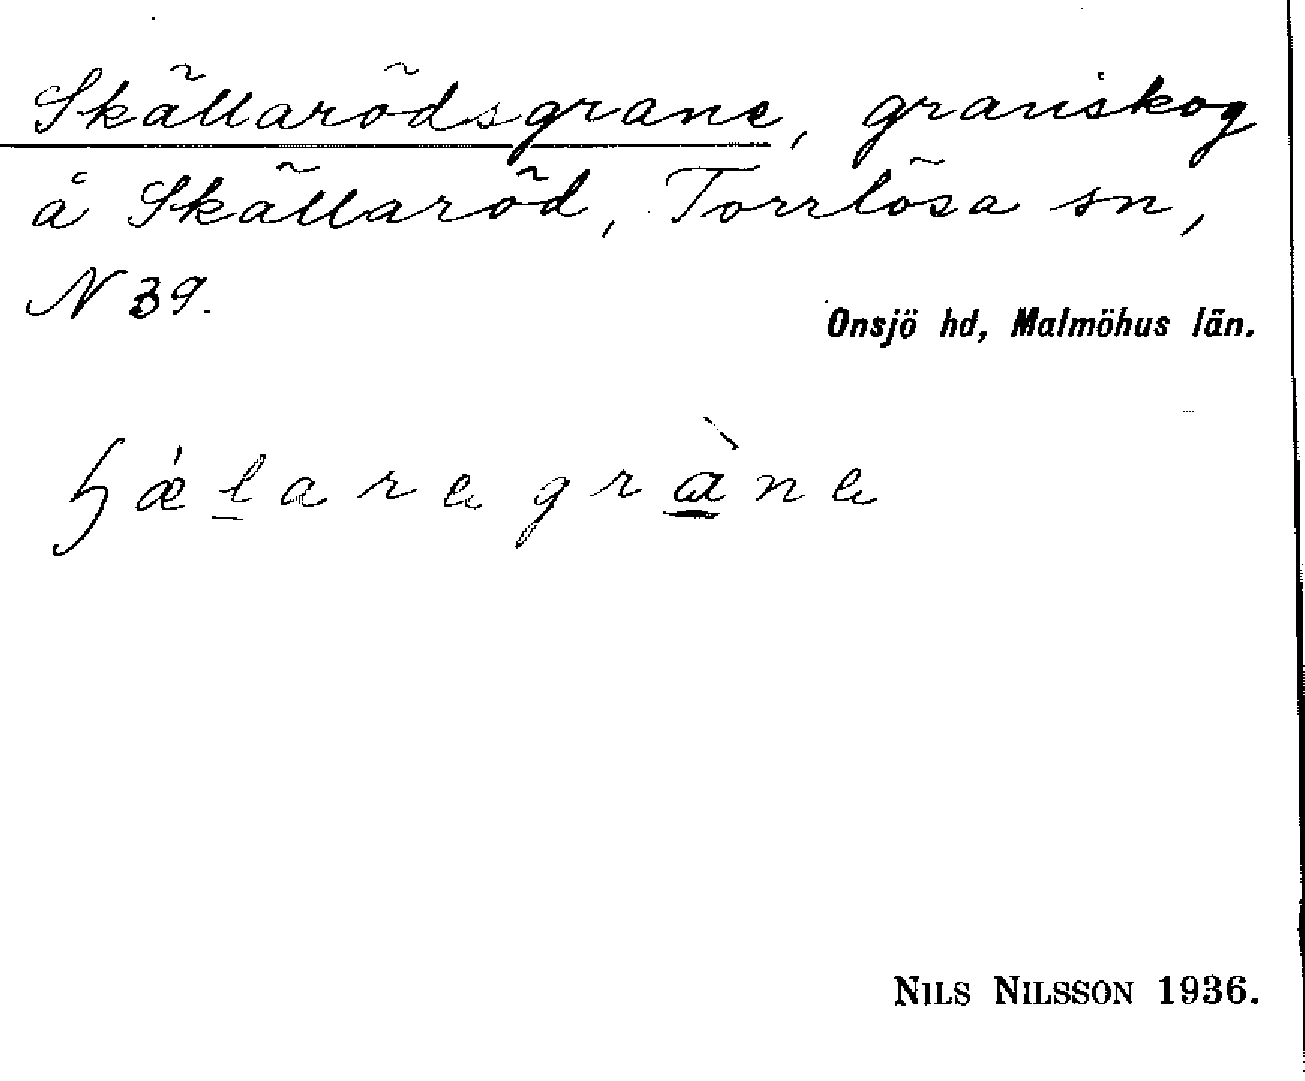 Skällarödsgrane, granskog
å Skällaröd, Torrlösa sn,
N 39.
Onsjö hd, Malmöhus län.
NILS NILSSON 1936.